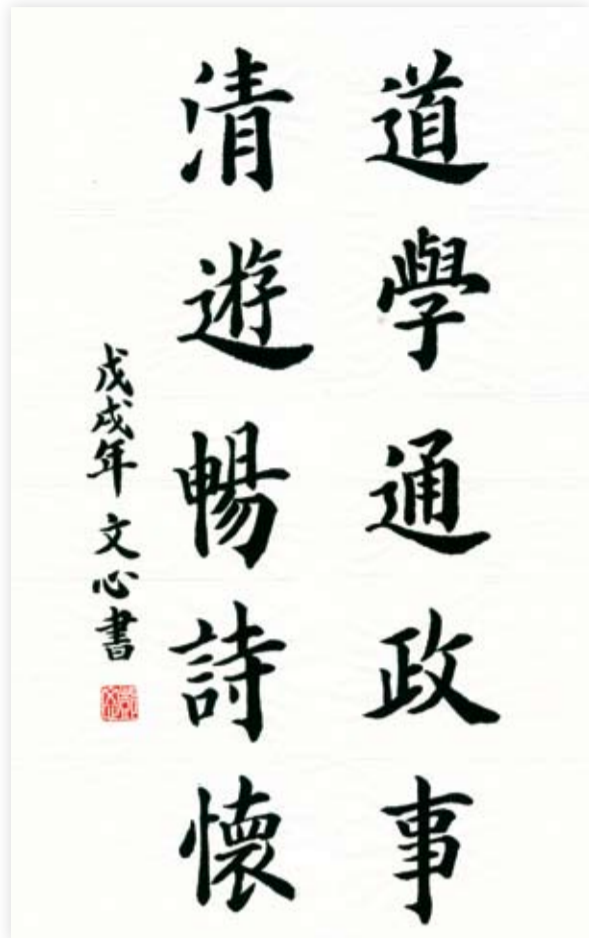 道學通政事
清遊暢詩懷
戊戌年文心書